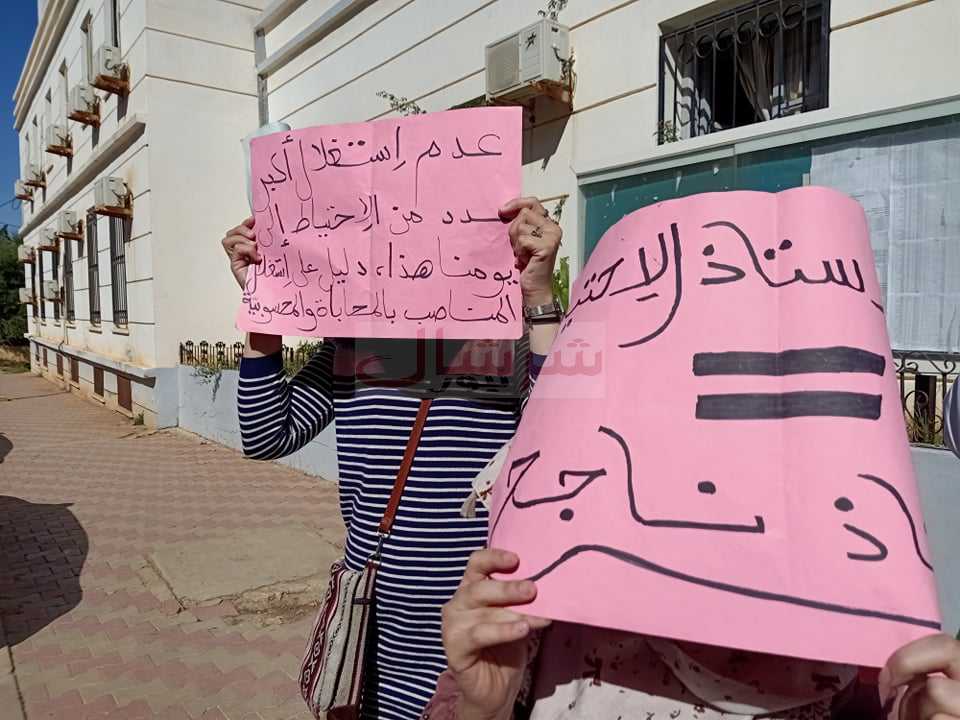 عدم إستغلال أكبر
عدد من الإحتياط الى
يومنا هذا، دليل على إستغلال
المناصب بالمحاباة والمحسوبية
شرشال
نيوز
ستاذ الإحتيا
=
ذ ناجح